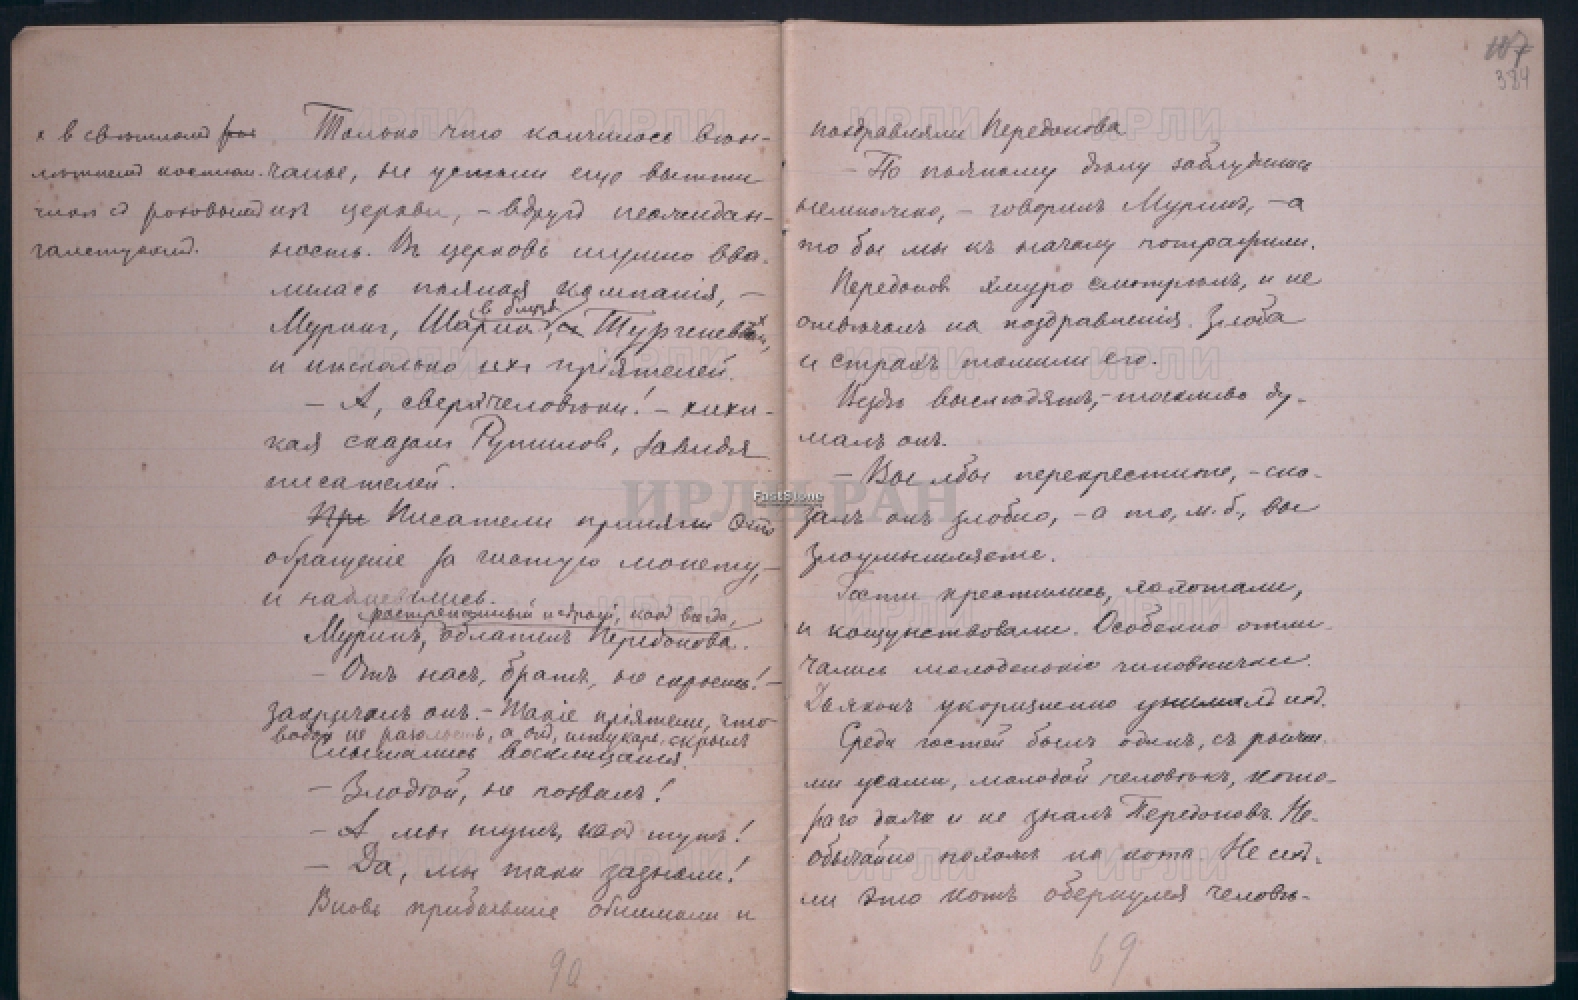 х в светлом
костюм.
чике с розовым
галстуком.
Только что кончилось вен-
чанье, не успели еще выйти
из церкви, – вдруг неожидан-
ность. Въ церковь шумно вва-
лилась пьяная компанія, –
Мурин, Шарик, Тургенев
и несколько их пріятелей.
– А, сверхчеловеки! – хихи-
кая сказал Рутилов, завидя
писателей.
При Писатели приняли это
обращеніе за чистую монету,
и
растрепанный и сѣрый, как всегда,
Муринъ, облапилъ Передонова.
– Отъ насъ, братъ, не скроешь! –
закричалъ онъ. – Такіе пріятели, что
водой не разольешь, а он, штукарь, скрылъ
Слышались восклицания.
– Злодей, не позвалъ!
– А мы тутъ, как тутъ!
– Да, мы таки узнали!
Вновь прибывшие обнимали и
90
107
384
поздравляли Передонова
– По пьяному делу заблудились
немножко, – говорилъ Муринъ, – а
то бы мы къ началу потрафили.
Передонов хмуро смотрелъ, и не
отвечалъ на поздравленія. Злоба
и страхъ томили его.
Везде выследятъ, – тоскливо ду-
малъ онъ.
– Вы лбы перекрестите, – ска-
залъ онъ злобно, – а то, м. б., вы
злоумышляете.
Гости крестились, хохотали,
и кощунствовали. Особенно отли-
чались молоденькіе чиновнички.
Дьяконъ укоризненно унималъ их.
Среди гостей былъ одинъ, съ рыжи-
ми усами, молодой человекъ, кото-
раго даже и не зналъ Передоновъ. Не-
обычайно похожъ на кота Не ихъ-
ли это котъ обернулся челове-
69
ИРЛИ РАН
FastStone